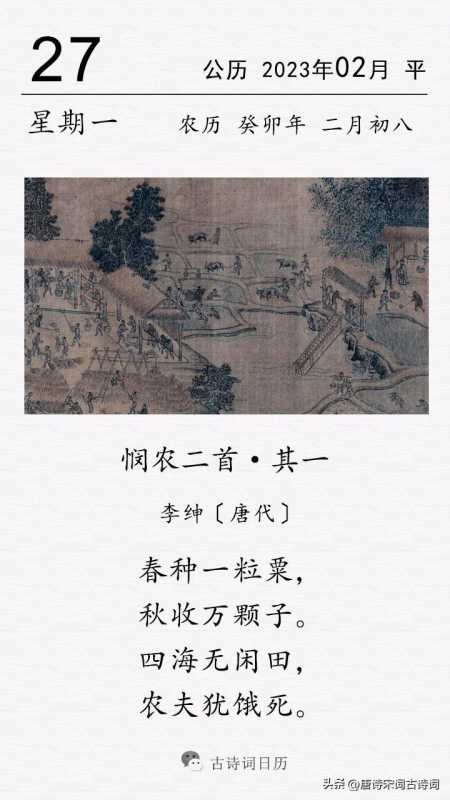 27
公历 2023年02月 平
星期一
农历 癸卯年 二月初八
悯农二首·其一
李绅〔唐代〕
春种一粒粟，
秋收万颗子。
四海无闲田，
农夫犹饿死。
古诗词日历
头条@唐诗宋词古诗词